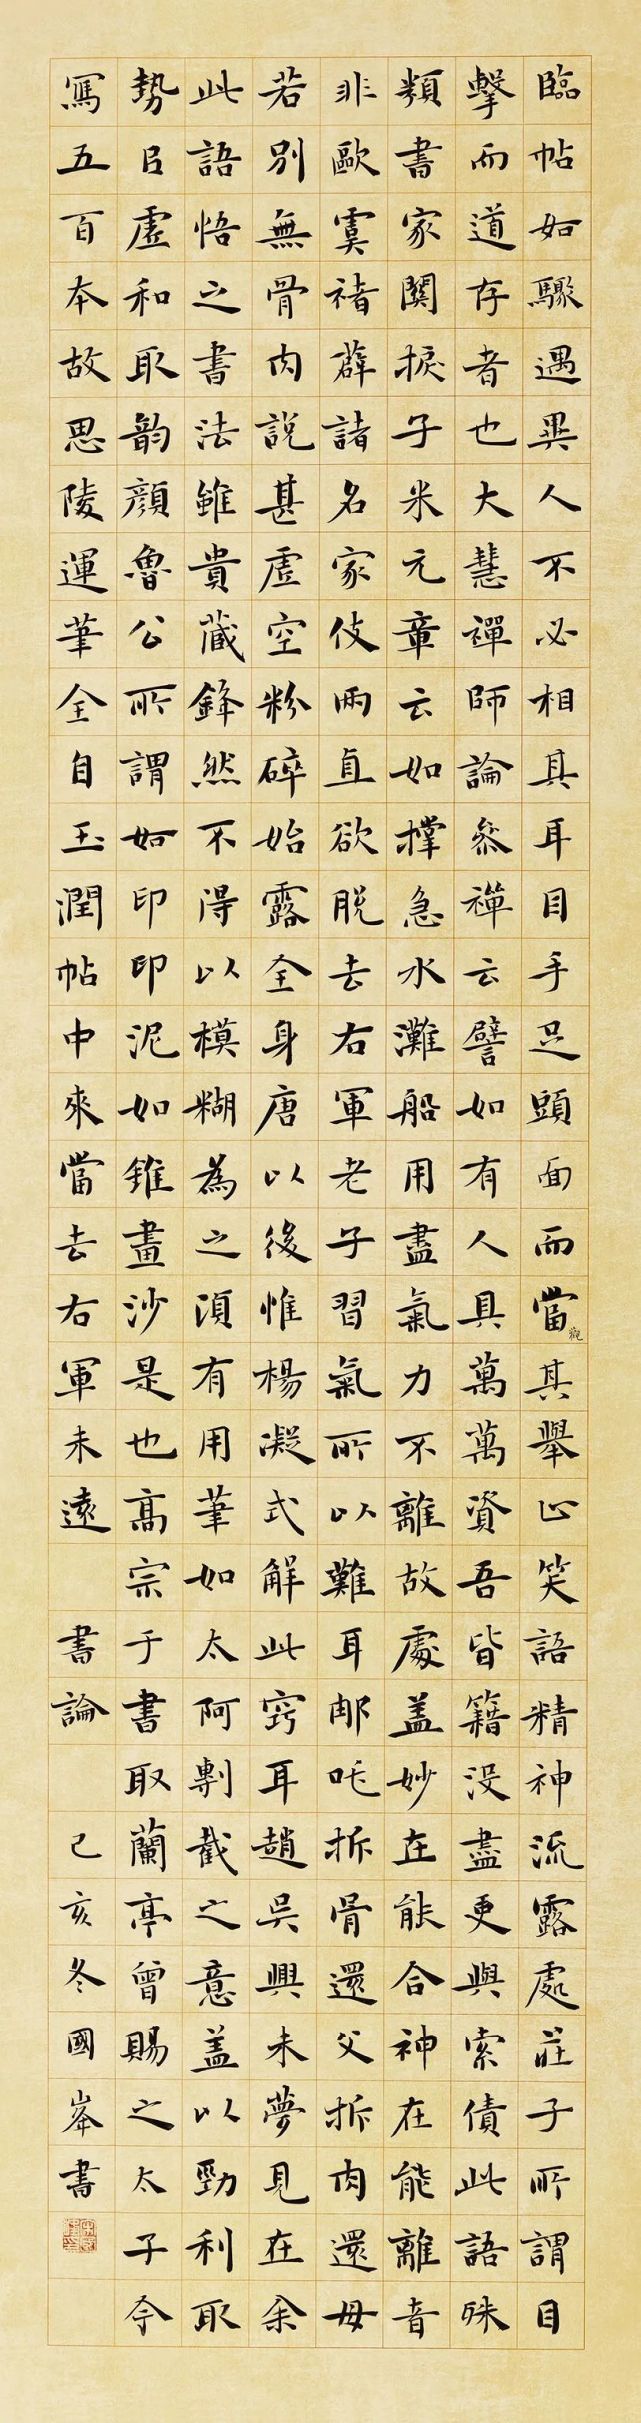 臨帖如驟遇異人不必相其耳目手足頭面而當觀其舉止笑語精神流露處莊子所謂目
擊而道存者也大慧禪師論參禪云譬如有人具萬萬資吾皆籍没盡更與索債此語殊
類書家關捩子米元章云如撐急水灘船用盡氣力不離故處蓋妙在能合神在能離音
非歐虞褚薛諸名家伎兩直欲脱去右軍老子習氣所以難耳那吒拆骨還父拆肉還母
若別無骨肉說甚虛空粉碎始露全身唐以後惟楊凝式解此竅耳趙吳興未夢見在余
此語悟之書法雖貴藏鋒然不得以模糊為之須有用筆如太阿剸截之意蓋以勁利取
勢㠯虛和取韵顏魯公所謂如印印泥如錐畫沙是也高宗于書取蘭亭曾賜之太子令
寫五百本故思陵運筆全自玉潤帖中來當去右軍未遠 書論 己亥冬國峯書